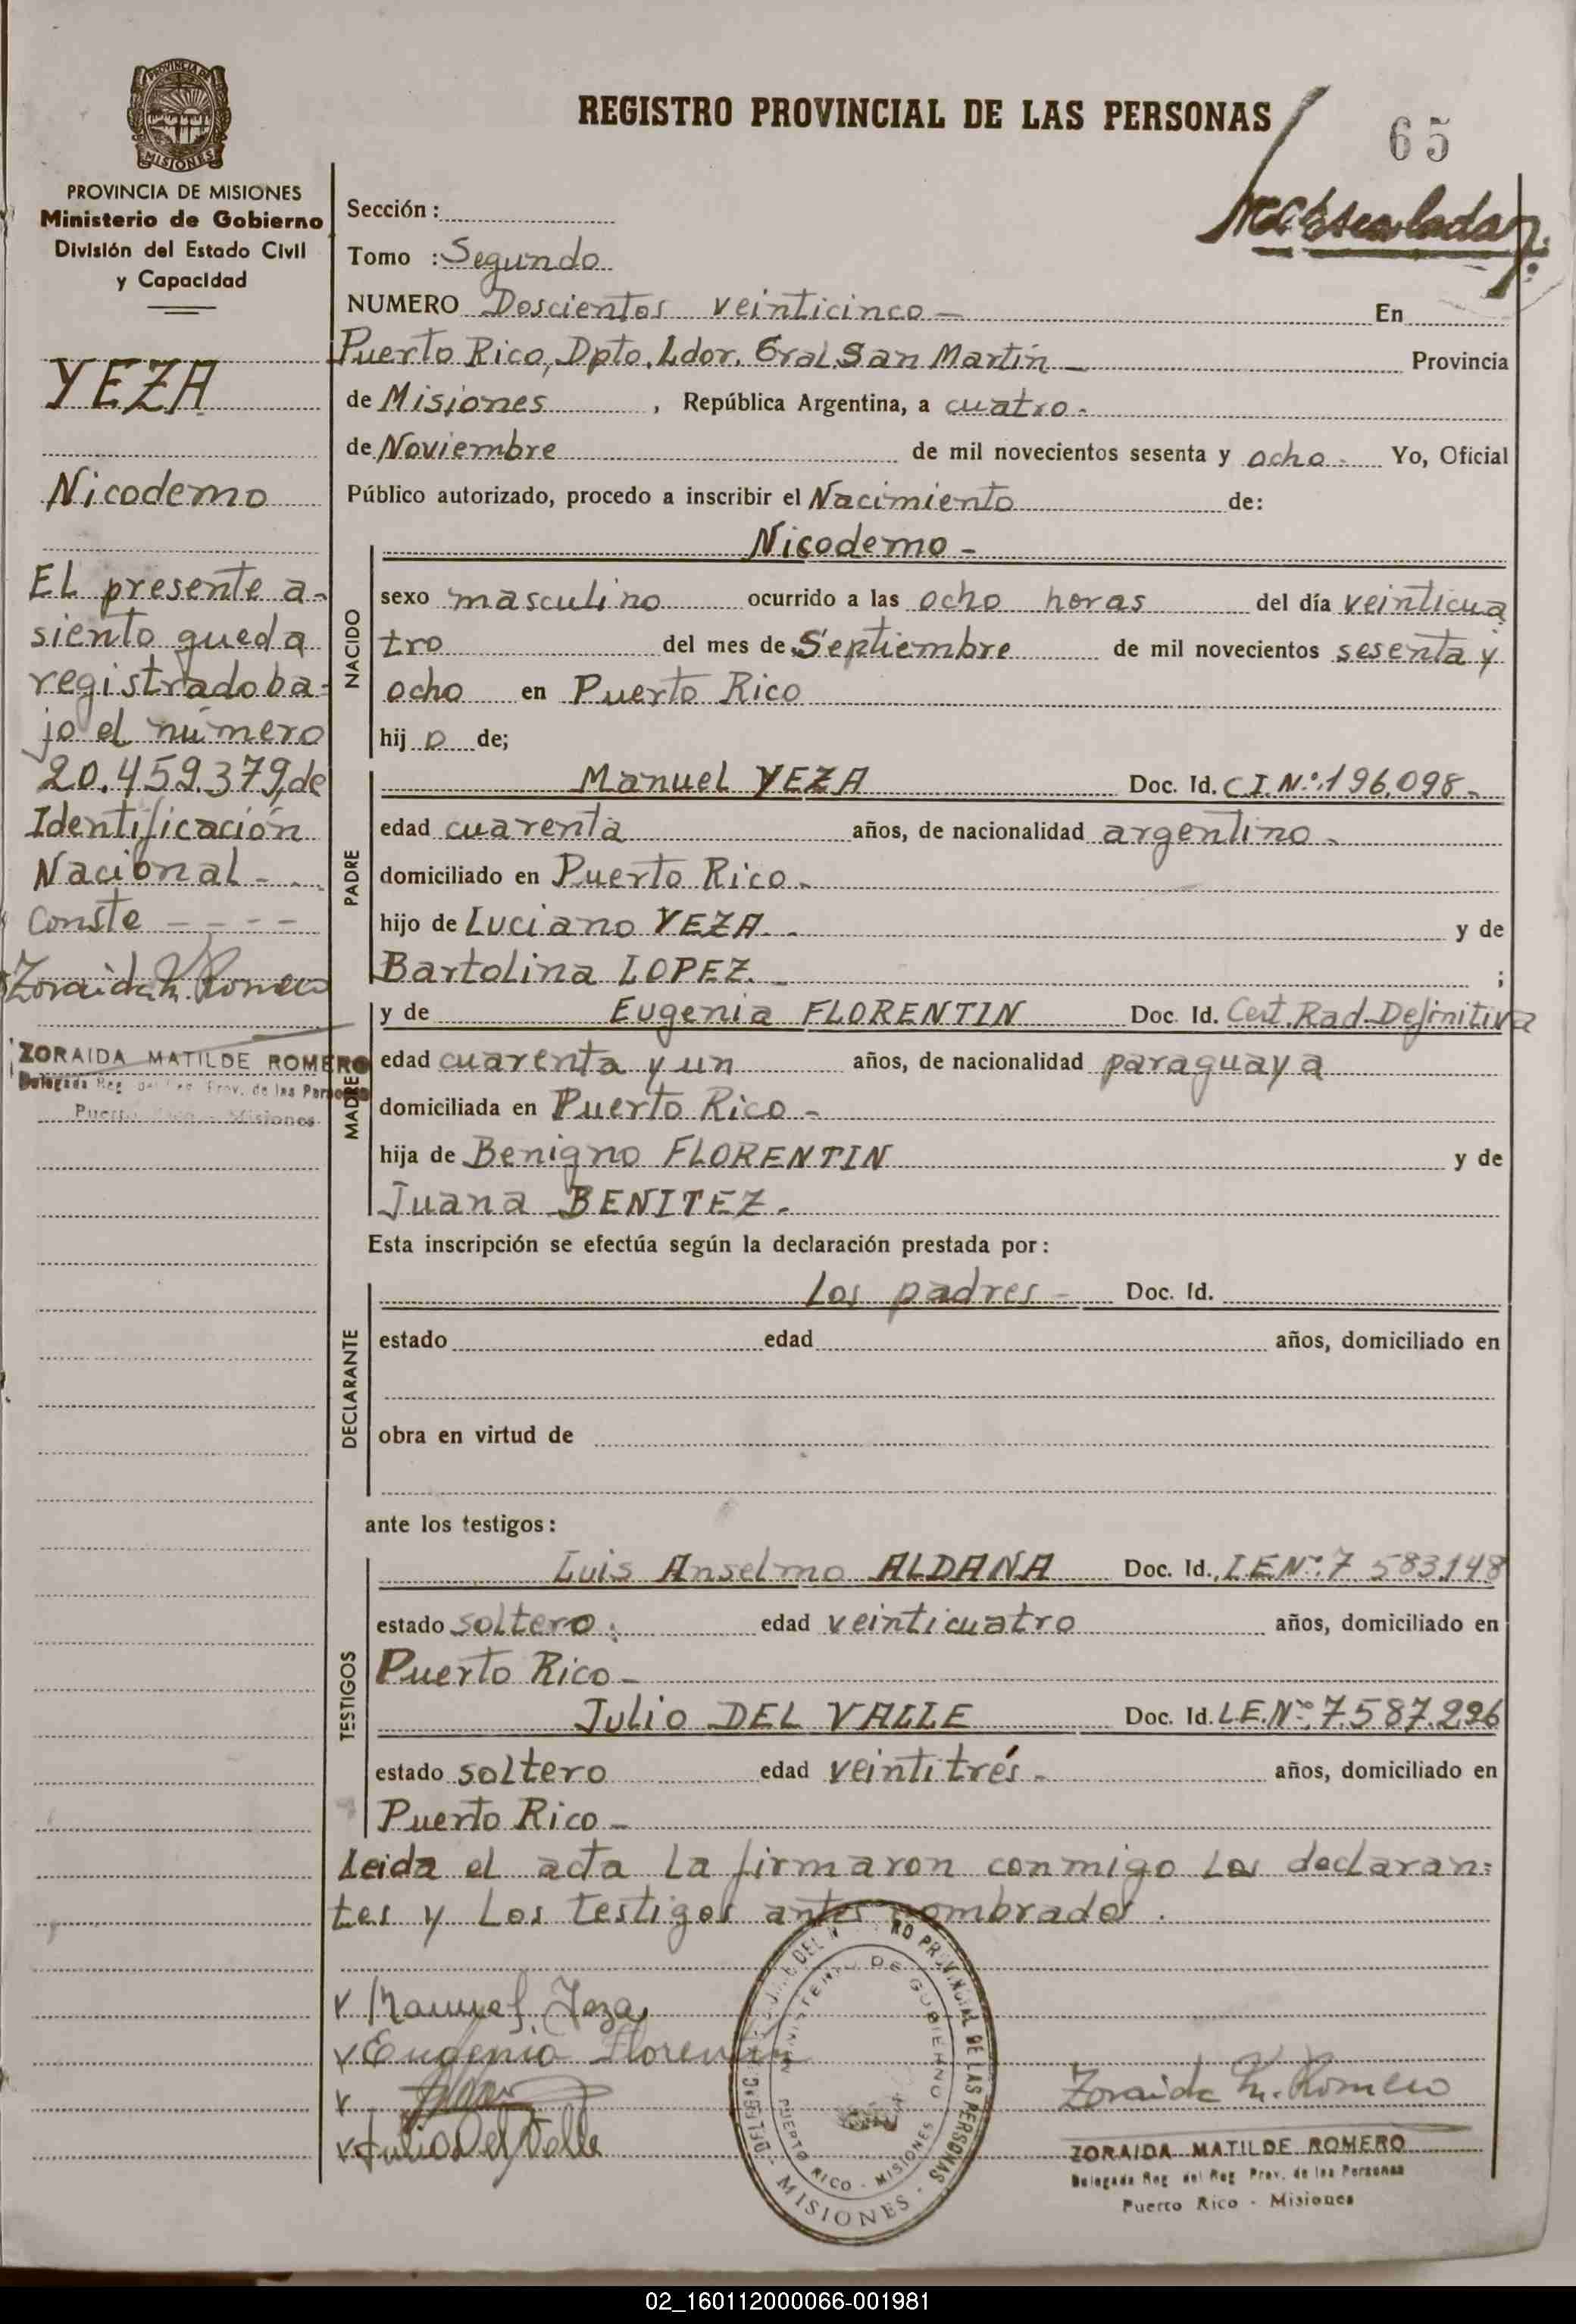 REGISTRO PROVINCIAL DE LAS PERSONAS
65
PROVINCIA DE MISIONES
Ministerio de Gobierno
División del Estado Civil
y Capacidad
YEZA
Nicodemo
EL presente a-
siento queda
registrado ba-
jo el número
20.459.379, de
Identificación
Nacional - . .
Conste - - - -
Zoraida M. Romero
ZORAIDA MATILDE ROMERO
Delegada Reg. del Reg. Prov. de las Personas
Puerto Rico - Misiones
Sección :
Tomo : Segundo
NUMERO Doscientos veinticinco - En
Puerto Rico, Dpto. Ldor. Gral. San Martín - Provincia
de Misiones , República Argentina, a cuatro -
de Noviembre de mil novecientos sesenta y ocho - Yo, Oficial
Público autorizado, procedo a inscribir el Nacimiento de:
NACIDO
Nicodemo -
sexo masculino ocurrido a las ocho horas del día veinticua
tro del mes de Septiembre de mil novecientos sesenta y
ocho en Puerto Rico
hij o de;
PADRE
Manuel YEZA Doc. Id. C.I. Nº: 196.098 -
edad cuarenta años, de nacionalidad argentino -
domiciliado en Puerto Rico -
hijo de Luciano YEZA - y de
Bartolina LOPEZ. - ;
MADRE
y de Eugenia FLORENTIN Doc. Id. Cert. Rad. Definitiva
edad cuarenta y un años, de nacionalidad paraguaya
domiciliada en Puerto Rico -
hija de Benigno FLORENTIN y de
Juana BENITEZ -
Esta inscripción se efectúa según la declaración prestada por:
DECLARANTE
Los padres - Doc. Id.
estado edad años, domiciliado en
obra en virtud de
ante los testigos:
TESTIGOS
Luis Anselmo ALDANA Doc. Id. L.E. Nº: 7.583.148
estado soltero edad veinticuatro años, domiciliado en
Puerto Rico -
Julio DEL VALLE Doc. Id. L.E. Nº: 7.587.296
estado soltero edad veintitrés - años, domiciliado en
Puerto Rico -
Leida el acta la firmaron conmigo los declaran-
tes y los testigos antes nombrados .
Manuel Yeza
Eugenia Florentin
Julio Del Valle
PROVINCIAL DE LAS PERSONAS
MINISTERIO DE GOBIERNO
PUERTO RICO - MISIONES
MISIONES
Zoraida M. Romero
ZORAIDA MATILDE ROMERO
Delegada Reg. del Reg. Prov. de las Personas
Puerto Rico - Misiones
02_160112000066-001981